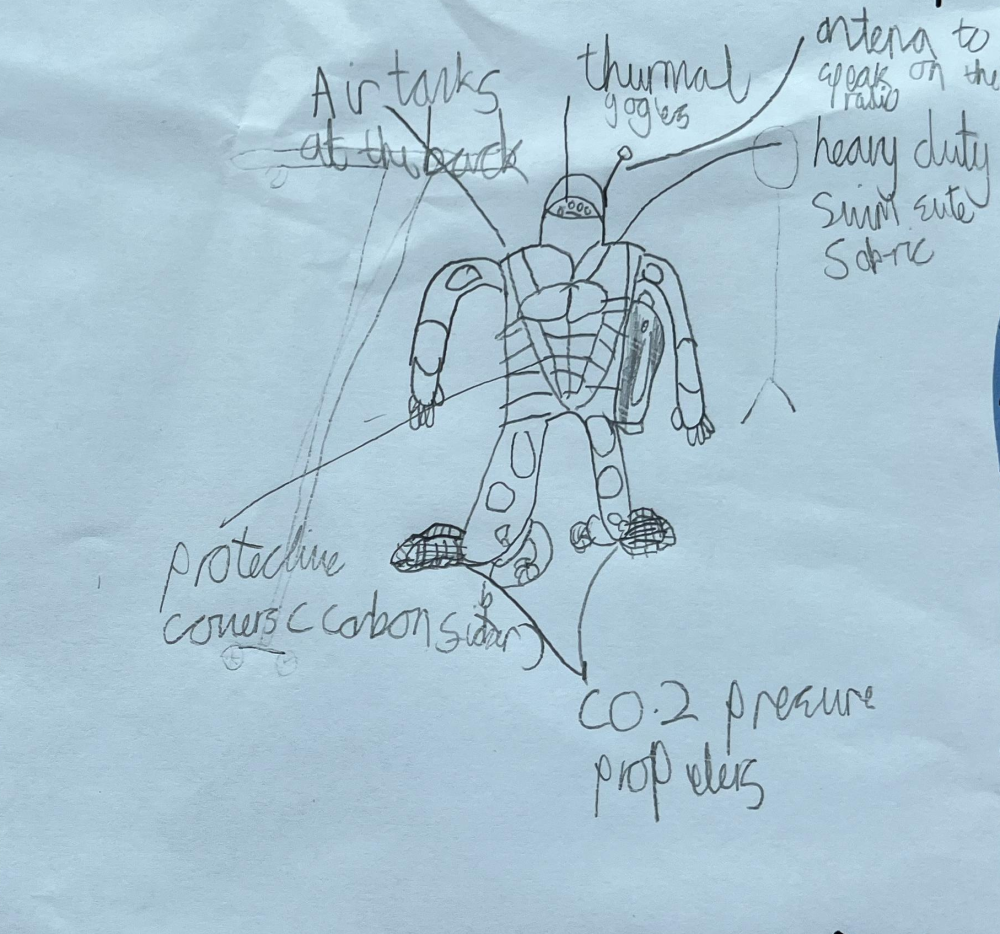 Air tanks
at the back
thurmal
gogles
antena to
speak on the
radio
heavy duty
swim sute
fabric
protective
covers (carbon fiber)
CO.2 presure
propelers